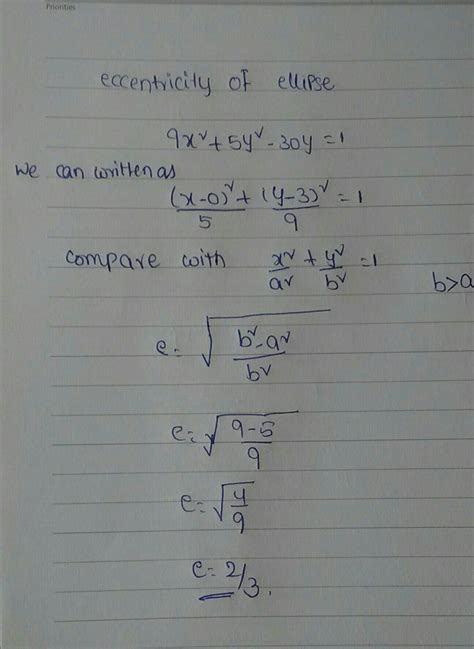 Priorities
eccentricity of ellipse
9x²+5y²-30y=1
we can written as
(x-0)²/5 + (y-3)²/9 = 1
compare with x²/a² + y²/b² = 1
b>a
e = √(b²-a²/b²)
e = √(9-5/9)
e = √(4/9)
e = 2/3.